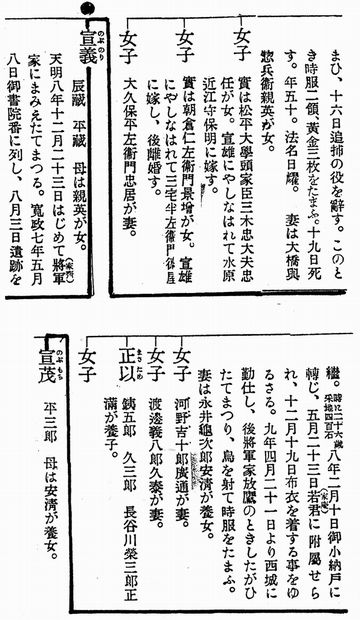 まひ、十六日追捕の役を辭す。このと
き時服二領、黃金三枚をたまふ。十九日死
す。年五十。法名日耀。 妻は大橋與
惣兵衞親英が女。
女子 實は松平大學頭家臣三木忠大夫忠
任が女。宣雄にやしなはれて水原
近江守保明に嫁す。
女子 實は朝倉仁左衞門景增が女。宣雄
にやしなはれて三宅半左衞門徳屋
に嫁し、後離婚す。
女子 大久保平左衞門忠居が妻。
宣義 のぶのり
辰藏 平藏 母は親英が女。
天明八年十二月二十三日はじめて將軍
(家齊)
家にまみえたてまつる。寬政七年五月
八日御書院番に列し、八月三日遺跡を
繼。時に二十六歲 采地四百石 八年二月十日御小納戶に
轉じ、五月二十三日若君に附屬せら
(家慶)
れ、十二月十九日布衣を着する事をゆ
るさる。九年四月二十一日より西城に
勤仕し、後將軍家放鷹のときしたがひ
たてまつり、鳥を射て時服をたまふ。
妻は永井龜次郎安淸が養女。
女子 河野吉十郎廣通が妻。
女子 渡邊義八郎久泰が妻。
正以 まさため
銕五郎 久三郎 長谷川榮三郎正
滿が養子。
女子
宣茂 のぶもち
平三郎 母は安淸が養女。